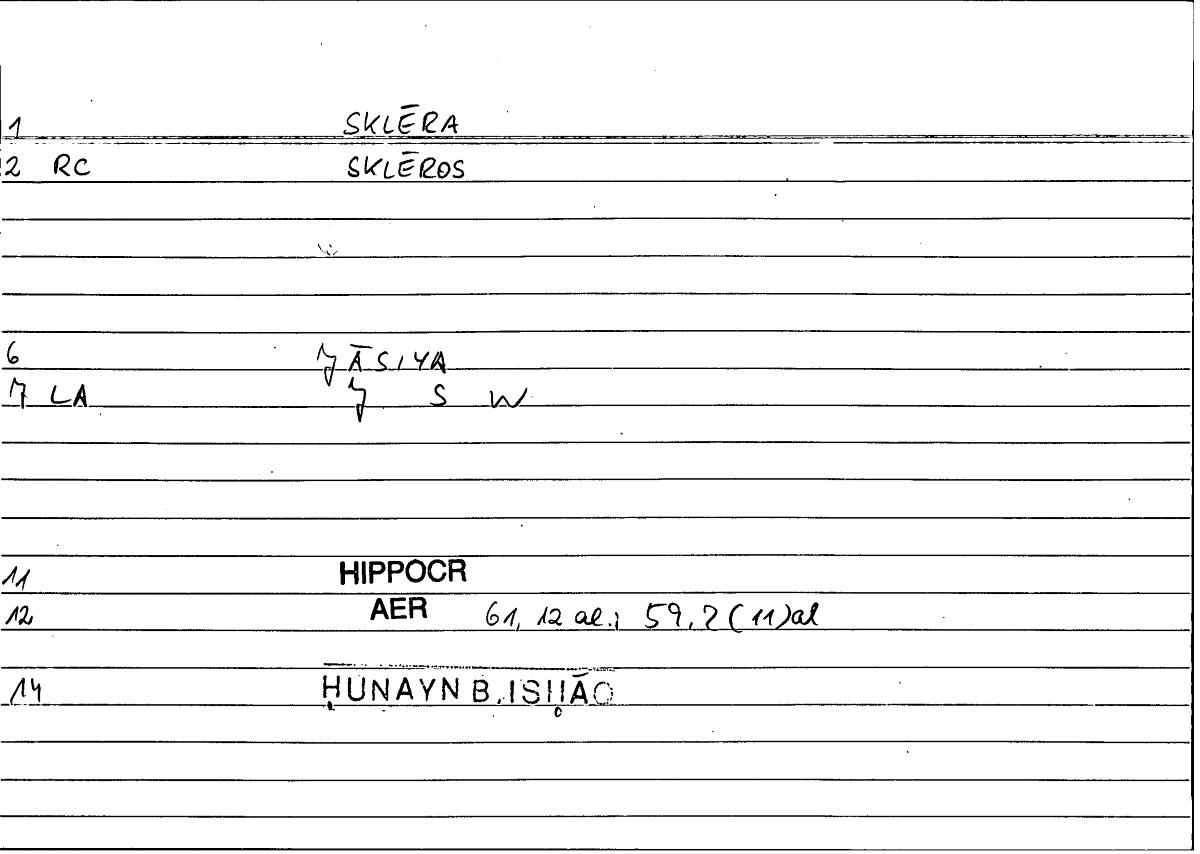 1 SKLĒRA
2 RC SKLĒROS
6 JĀSIYA
7 LA J S W
11 HIPPOCR
12 AER 61, 12 al.; 59, 2 (11) al
14 ḤUNAYN B. ISḤĀQ